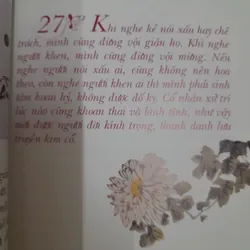 27 Khi nghe kẻ nói xấu hay chê
trách, mình cũng đừng vội giận họ. Khi nghe
người khen, mình cũng đừng vội mừng. Nếu
nghe người nói xấu ai, cũng không nên hoa
theo, còn nghe người khen ai thì mình phải sinh
tâm hoan hỷ, không được đố kỵ. Cổ nhân xử trí
lúc nào cũng khoan thai và bình tĩnh, như vậy
mới được người đời kính trọng, thanh danh lưu
truyền kim cổ.